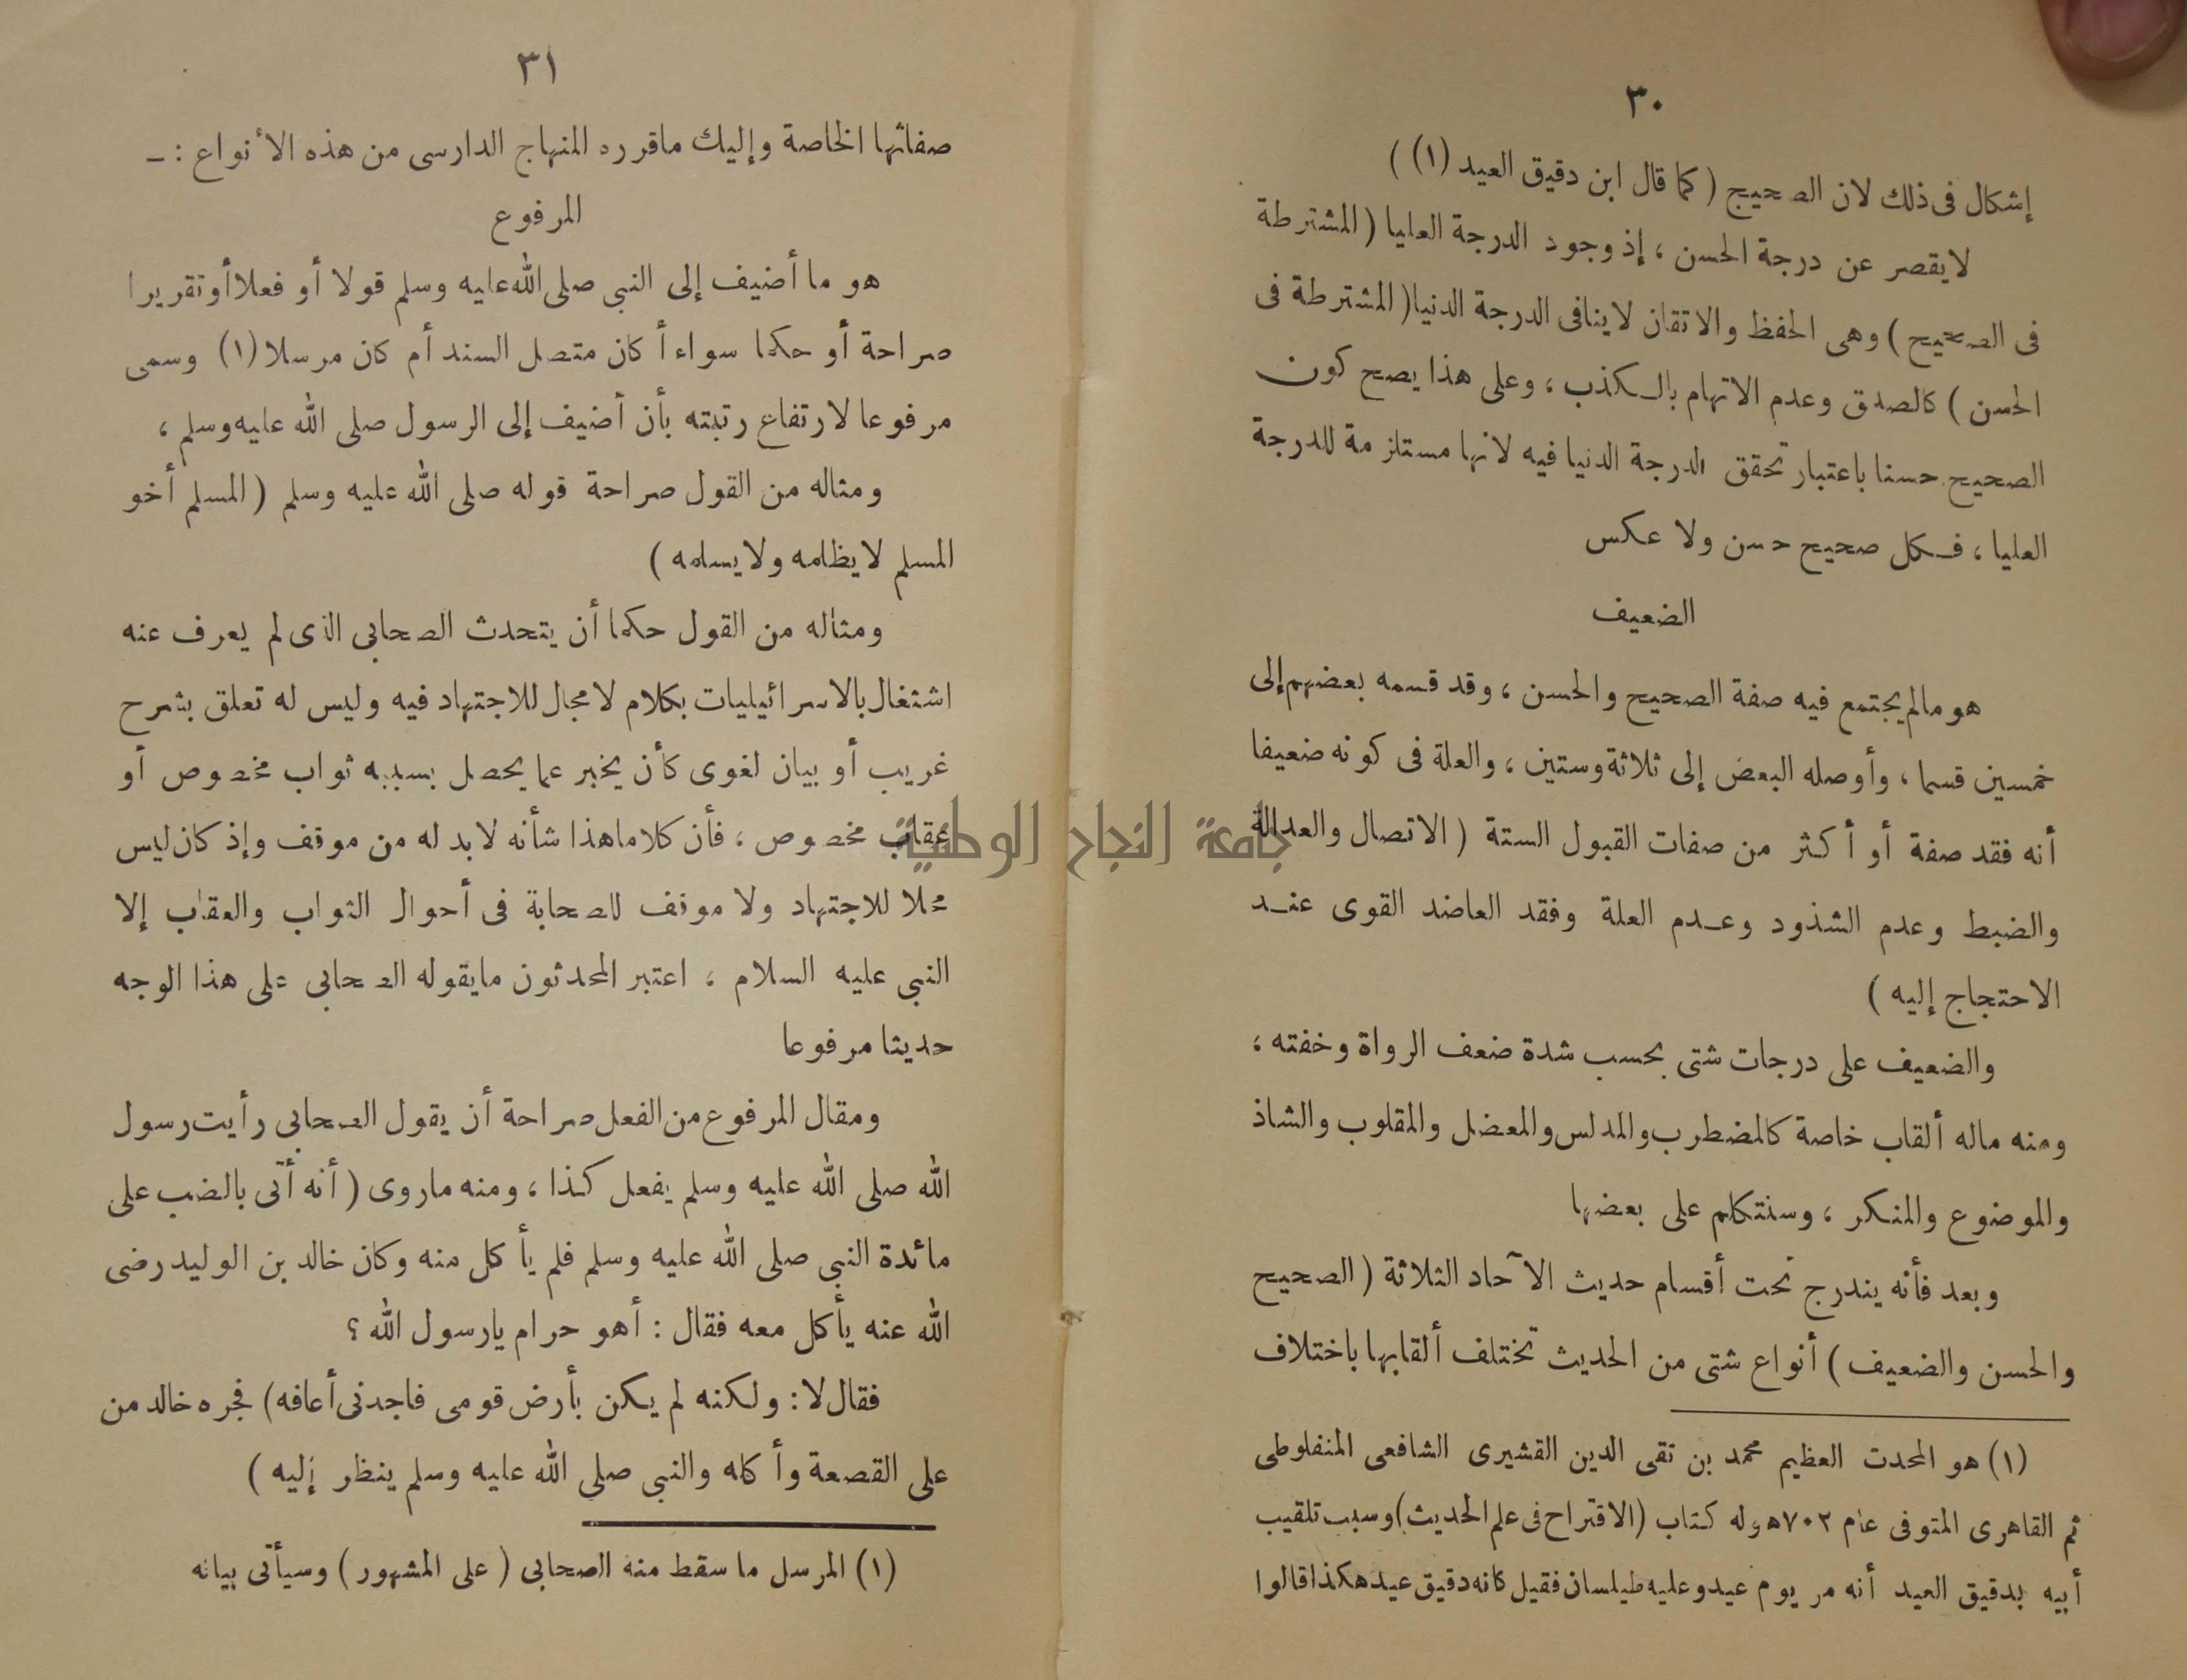 ٣٠
إشكال فى ذلك لان الصحيح ( كما قال ابن دقيق العيد (١) )
لايقصر عن درجة الحسن ، إذ وجود الدرجة العليا ( المشترطة
فى الصحيح ) وهى الحفظ والاتقان لاينافى الدرجة الدنيا ( المشترطة فى
الحسن ) كالصدق وعدم الاتهام بالكذب ، وعلى هذا يصح كون
الصحيح حسنا باعتبار تحقق الدرجة الدنيا فيه لانها مستلزمة للدرجة
العليا ، فكل صحيح حسن ولا عكس
الضعيف
هو مالم يجتمع فيه صفة الصحيح والحسن ، وقد قسمه بعضهم إلى
خمسين قسما ، وأوصله البعض إلى ثلاثة وستين ، والعلة فى كونه ضعيفا
أنه فقد صفة أو أكثر من صفات القبول الستة ( الاتصال والعدالة
والضبط وعدم الشذوذ وعدم العلة وفقد العاضد القوى عند
الاحتجاج إليه )
والضعيف على درجات شتى بحسب شدة ضعف الرواة وخفته ،
ومنه ماله ألقاب خاصة كالمضطرب والمدلس والمعضل والمقلوب والشاذ
والموضوع والمنكر ، وسنتكلم على بعضها
وبعد فأنه يندرج تحت أقسام حديث الآحاد الثلاثة ( الصحيح
والحسن والضعيف ) أنواع شتى من الحديث تختلف ألقابها باختلاف
(١) هو المحدت العظيم محمد بن تقى الدين القشيرى الشافعى المنفلوطى
ثم القاهرى المتوفى عام ٧٠٢ هـ وله كتاب (الاقتراح فى علم الحديث) وسبب تلقيب
أبيه بدقيق العيد أنه مر يوم عيد وعليه طيلسان فقيل كانه دقيق عيد هكذا قالوا
جامعة النجاح الوطنية
٣١
صفاتها الخاصة وإليك ماقرره المنهاج الدارسى من هذه الأنواع : ــ
المرفوع
هو ما أضيف إلى النبى صلى الله عليه وسلم قولا أو فعلا أو تقريرا
صراحة أو حكما سواء أكان متصل السند أم كان مرسلا (١) وسمى
مرفوعا لارتفاع رتبته بأن أضيف إلى الرسول صلى الله عليه وسلم ،
ومثاله من القول صراحة قوله صلى الله عليه وسلم ( المسلم أخو
المسلم لايظلمه ولايسلمه )
ومثاله من القول حكما أن يتحدث الصحابى الذى لم يعرف عنه
اشتغال بالاسرائيليات بكلام لامجال للاجتهاد فيه وليس له تعلق بشرح
غريب أو بيان لغوى كأن يخبر عما يحصل بسببه ثواب مخصوص أو
عقاب مخصوص ، فأن كلاما هذا شأنه لابد له من موقف وإذ كان ليس
محلا للاجتهاد ولا موقف للصحابة فى أحوال الثواب والعقاب إلا
النبى عليه السلام ، اعتبر المحدثون مايقوله الصحابى على هذا الوجه
حديثا مرفوعا
ومقال المرفوع من الفعل صراحة أن يقول الصحابى رأيت رسول
الله صلى الله عليه وسلم يفعل كذا ، ومنه ماروى ( أنه أتى بالضب على
مائدة النبى صلى الله عليه وسلم فلم يأكل منه وكان خالد بن الوليد رضى
الله عنه يأكل معه فقال : أهو حرام يارسول الله ؟
فقال لا : ولكنه لم يكن بأرض قومى فاجدنى أعافه ) فجره خالد من
على القصعة وأكله والنبى صلى الله عليه وسلم ينظر إليه )
(١) المرسل ما سقط منه الصحابى ( على المشهور ) وسيأتى بيانه